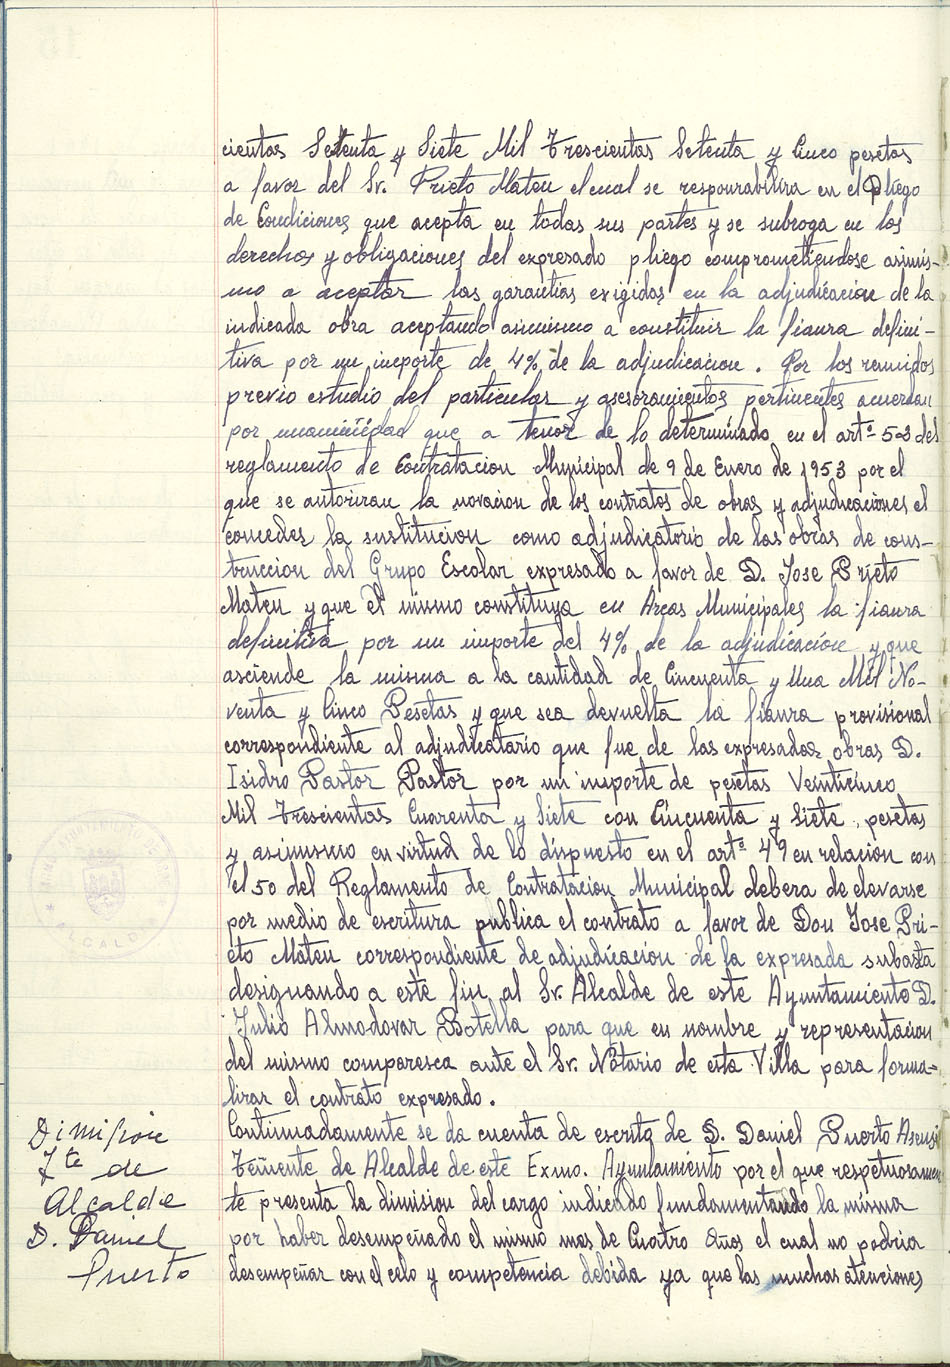 cientas Setenta y Siete Mil Trescientas Setenta y Cinco pesetas
a favor del Sr. Prieto Mateu el cual se responsabiliza en el Pliego
de Condiciones que acepta en todas sus partes y se subroga en los
derechos y obligaciones del expresado pliego comprometiendose asimis-
mo a aceptar las garantias exigidas en la adjudicacion de la
indicada obra aceptando asimismo a constituir la fianza defini-
tiva por un importe de 4% de la adjudicacion. Por los reunidos
previo estudio del particular y asesoramientos pertinentes acuerdan
por unanimidad que a tenor de lo determinado en el artº 53 del
reglamento de Contratacion Municipal de 9 de Enero de 1953 por el
que se autorizan la novacion de los contratos de obras y adjudicaciones el
concedes la sustitucion como adjudicatorio de las obras de cons-
truccion del Grupo Escolar expresado a favor de D. Jose Prieto
Mateu y que el mismo constituya en Arcas Municipales la fianza
definitiva por un importe del 4% de la adjudicacion y que
asciende la misma a la cantidad de Cincuenta y Una Mil No-
venta y Cinco Pesetas y que sea devuelta la fianza provisional
correspondiente al adjudicatario que fue de las expresadas obras D.
Isidro Pastor Pastor por un importe de pesetas Veinticinco
Mil Trescientas Cuarenta y Siete con Cincuenta y Siete pesetas
y asimismo en virtud de lo dispuesto en el artº 49 en relacion con
el 50 del Reglamento de Contratacion Municipal debera de elevarse
por medio de escritura publica el contrato a favor de Don Jose Pri-
eto Mateu correspondiente de adjudicacion de la expresada subasta
designando a este fin al Sr. Alcalde de este Ayuntamiento D.
Julio Almodovar Botella para que en nombre y representacion
del mismo comparesca ante el Sr. Notario de esta Villa para forma-
lizar el contrato expresado.
Continuadamente se da cuenta de escrito de D. Daniel Puerto Asensi
Teniente de Alcalde de este Exmo. Ayuntamiento por el que respetuosamen
te presenta la dimision del cargo indicado fundamentando la misma
por haber desempeñado el mismo mas de Cuatro Años el cual no podria
desempeñar con el celo y competencia debida ya que las muchas atenciones
Dimision
Tte de
Alcalde
D. Daniel
Puerto
ALCALD